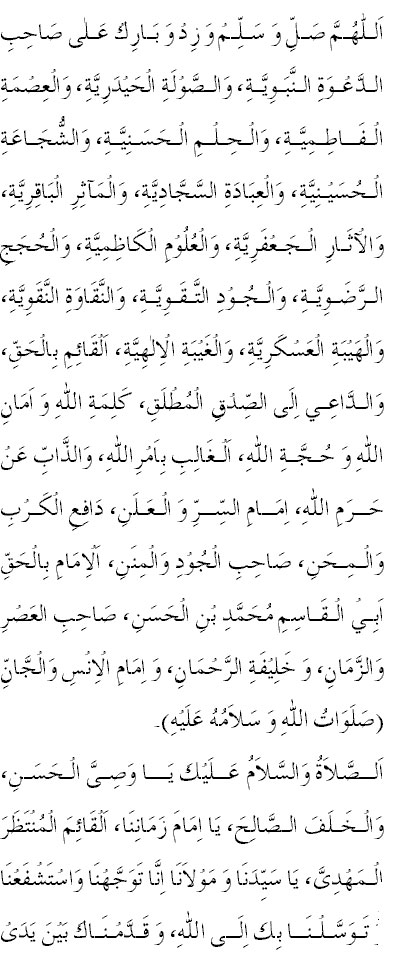 اَللّٰهُمَّ صَلِّ وَ سَلِّمْ وَ زِدْ وَ بَارِكْ عَلٰى صَاحِبِ
الدَّعْوَةِ النَّبَوِيَّةِ، وَالصَّوْلَةِ الْحَيْدَرِيَّةِ، وَالْعِصْمَةِ
الْفَاطِمِيَّةِ، وَالْحِلْمِ الْحَسَنِيَّةِ، وَالشُّجَاعَةِ
الْحُسَيْنِيَّةِ، وَالْعِبَادَةِ السَّجَّادِيَّةِ، وَالْمَآثِرِ الْبَاقِرِيَّةِ،
وَالْآثَارِ الْجَعْفَرِيَّةِ، وَالْعُلُوْمِ الْكَاظِمِيَّةِ، وَالْحُجَجِ
الرَّضَوِيَّةِ، وَالْجُوْدِ التَّقَوِيَّةِ، وَالنَّقَاوَةِ النَّقَوِيَّةِ،
وَالْهَيْبَةِ الْعَسْكَرِيَّةِ، وَالْغَيْبَةِ الْاِلٰهِيَّةِ، اَلْقَائِمِ بِالْحَقِّ،
وَالدَّاعِي اِلَى الصِّدْقِ الْمُطْلَقِ، كَلِمَةِ اللهِ وَ اَمَانِ
اللهِ وَ حُجَّةِ اللهِ، اَلْغَالِبِ بِاَمْرِ اللهِ، وَالذَّابِّ عَنْ
حَرَمِ اللهِ، اِمَامِ السِّرِّ وَ الْعَلَنِ، دَافِعِ الْكَرْبِ
وَالْمِحَنِ، صَاحِبِ الْجُوْدِ وَالْمِنَنِ، اَلْاِمَامِ بِالْحَقِّ
اَبِيْ الْقَاسِمِ مُحَمَّدِ بْنِ الْحَسَنِ، صَاحِبِ الْعَصْرِ
وَالزَّمَانِ، وَ خَلِيْفَةِ الرَّحْمَانِ، وَ اِمَامِ الْاِنْسِ وَالْجَانِّ
(صَلَوَاتُ اللهِ وَ سَلَامُهُ عَلَيْهِ).
اَلصَّلَاةُ وَالسَّلَامُ عَلَيْكَ يَا وَصِيَّ الْحَسَنِ،
وَالْخَلَفَ الصَّالِحَ، يَا اِمَامَ زَمَانِنَا، اَلْقَائِمَ الْمُنْتَظَرَ
الْمَهْدِيَّ، يَا سَيِّدَنَا وَ مَوْلَانَا اِنَّا تَوَجَّهْنَا وَاسْتَشْفَعْنَا
تَوَسَّلْنَا بِكَ اِلَى اللهِ، وَ قَدَّمْنَاكَ بَيْنَ يَدَيْ